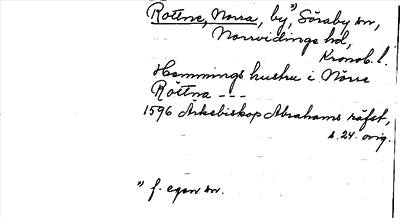 Rottne, Norra, by, ¹⁾ Söraby sn,
Norrvidinge hd,
Kronob. l.
Hemmings hustru i Nörre
Rottna ---
1596 Ärkebiskop Abrahams räfst,
s. 24. orig.
¹⁾ f. egen sn.